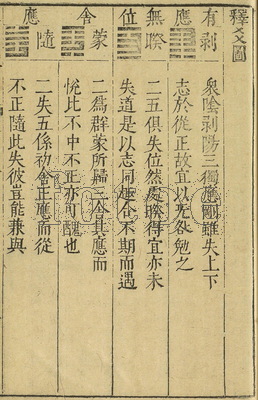 釋爻圖
有剝
應
衆陰剝陽三獨應剛雖失上下
志於從正故宜以无咎勉之
無睽
位
二五俱失位然處睽得宜亦未
失道是以志同趣合不期而遇
舍蒙
二爲群蒙所歸三舍其應而
悅比不中不正亦可醜也
應隨
二失五係初舍正應而從
不正隨此失彼豈能兼與